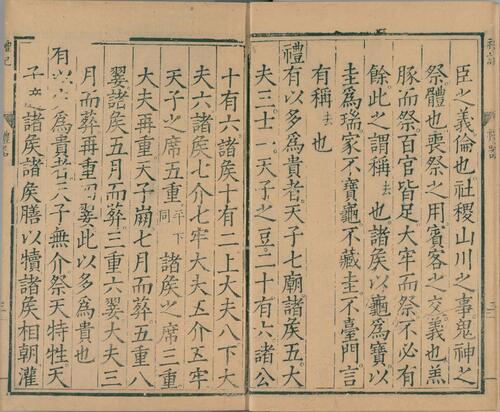 臣之義倫也社稷山川之事鬼神之
祭體也喪祭之用賓客之交義也羔
豚而祭百官皆足大牢而祭不必有
餘此之謂稱去也諸侯以龜爲寶以
圭爲瑞家不寶龜不藏圭不臺門言
有稱去也
禮有以多爲貴者天子七廟諸侯五大
夫三士一天子之豆二十有六諸公
十有六諸侯十有二上大夫八下大
夫六諸侯七介七牢大夫五介五牢
天子之席五重平下同諸侯之席三重
大夫再重天子崩七月而葬五重八
翣諸侯五月而葬三重六翣大夫三
月而葬再重四翣此以多爲貴也
有以少爲貴者天子無介祭天特牲天
子之諸侯諸侯膳以犢諸侯相朝灌
禮記